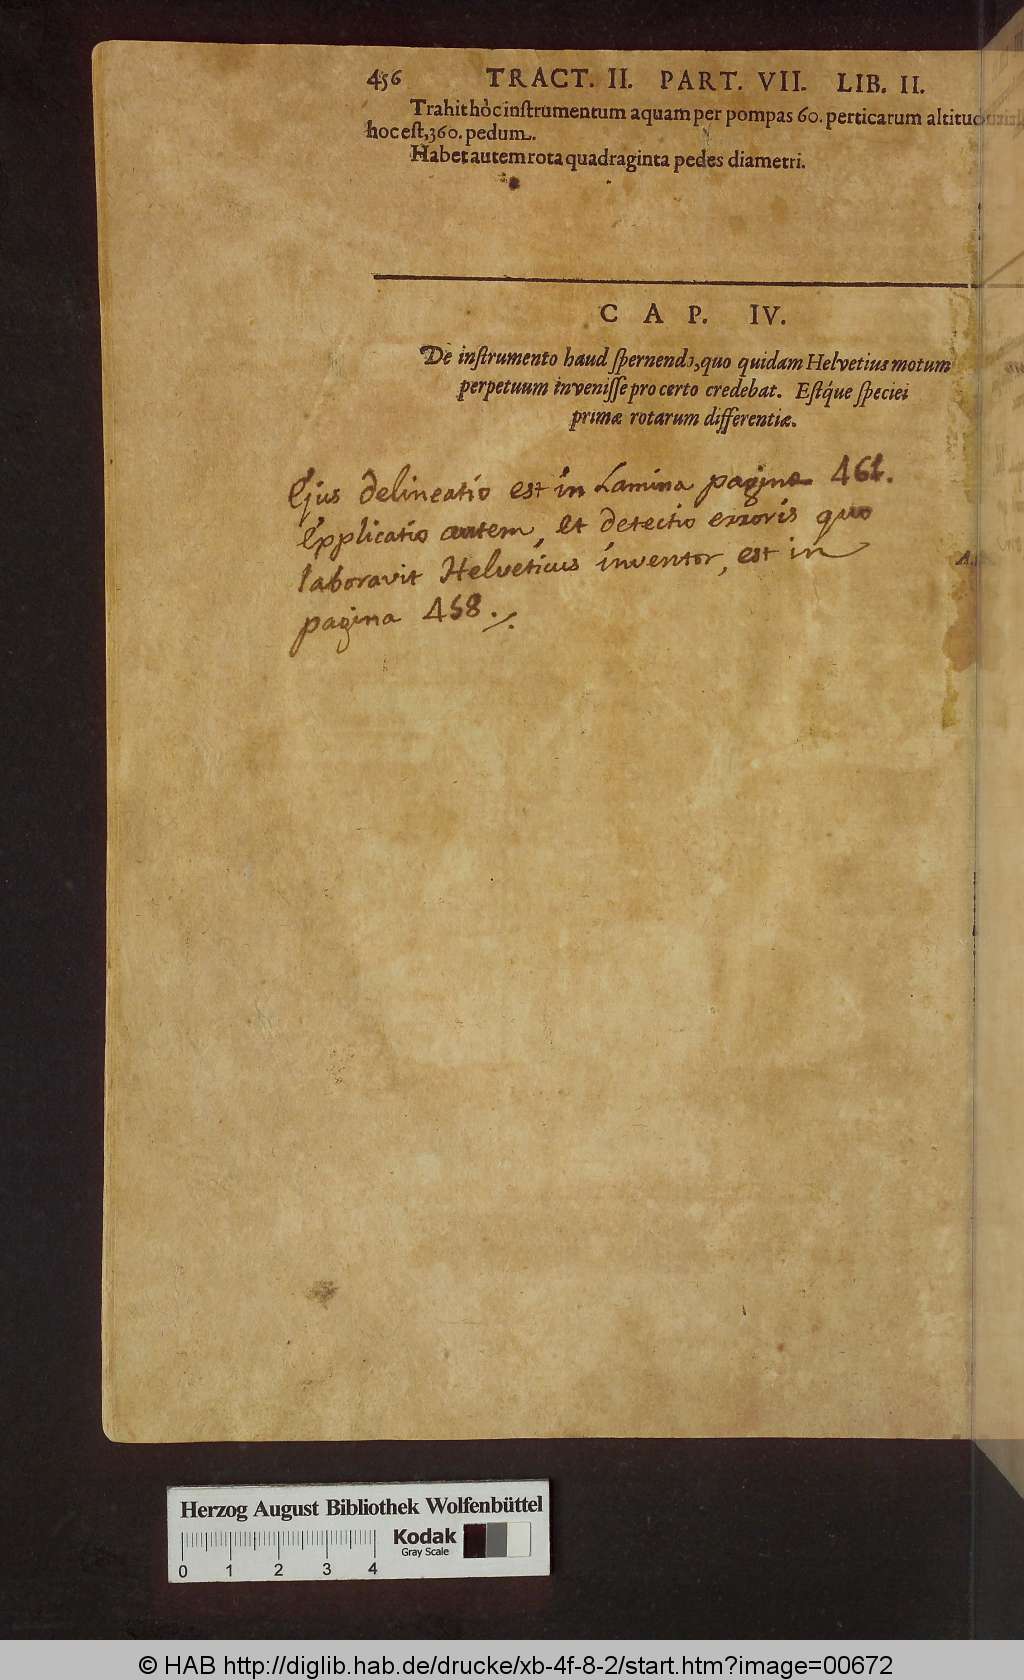 456 TRACT. II. PART. VII. LIB. II.
Trahit hòc inſtrumentum aquam per pompas 60. perticarum
hoc eſt, 360. pedum.
Habet autem rota quadraginta pedes diametri.
CAP. IV.
De inſtrumento haud ſpernendo, quo quidam Helvetius motum
perpetuum inveniſſe pro certo credebat. Eſtq́ue ſpeciei
primæ rotarum differentiæ.
Ejus delineatio est in Lamina paginæ 461.
Explicatio autem, et detectio erroris quo
laboravit Helveticus inventor, est in
pagina 458.
Herzog August Bibliothek Wolfenbüttel
Kodak
Gray Scale
0 1 2 3 4
© HAB http://diglib.hab.de/drucke/xb-4f-8-2/start.htm?image=00672